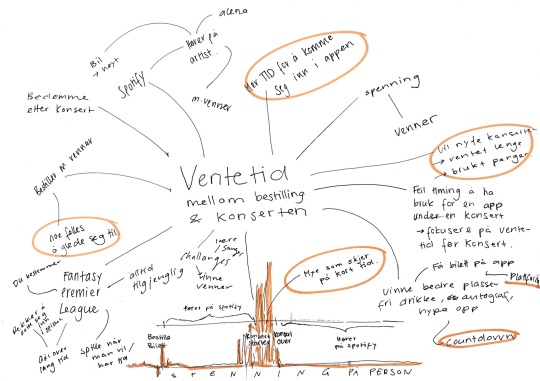 alene
Bil
Hører på
artist
Spotify
m. venner
Har TID for å komme
seg inn i appen
Bedømme
etter konsert
spenning
venner
Vil nyte konserten
→ ventet lenge
→ brukt penger
Bestiller m venner
Ventetid
mellom bestilling
& konserten
noe felles
å glede seg til
Feil timing å ha
bruk for en app
under en konsert
→ fokusere på vente-
tid før konsert.
lære
sanger
challanges
vinne
venner
alltid
tilgjengelig
Mye som skjer
på kort tid
Du bestemmer
Fantasy
Premier
League
Få bilett på app
Vinne bedre plasser
fri drikke,
møte opp
countdown
Går over
lang tid
spille når
man vil/
har tid
hører på spotify
Bestille
Billett
Konsert
starter
Konsert
over
Hører
på spotify
SPENNING PÅ PERSON